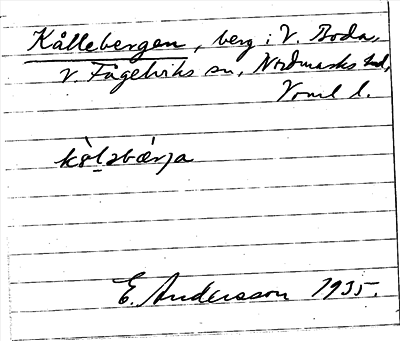 Kållebergen, berg i V. Boda,
V. Fågelviks sn, Nordmarks hd,
Vrml. l.
kö̀l̠əbæ̀rja
E. Andersson 1935.